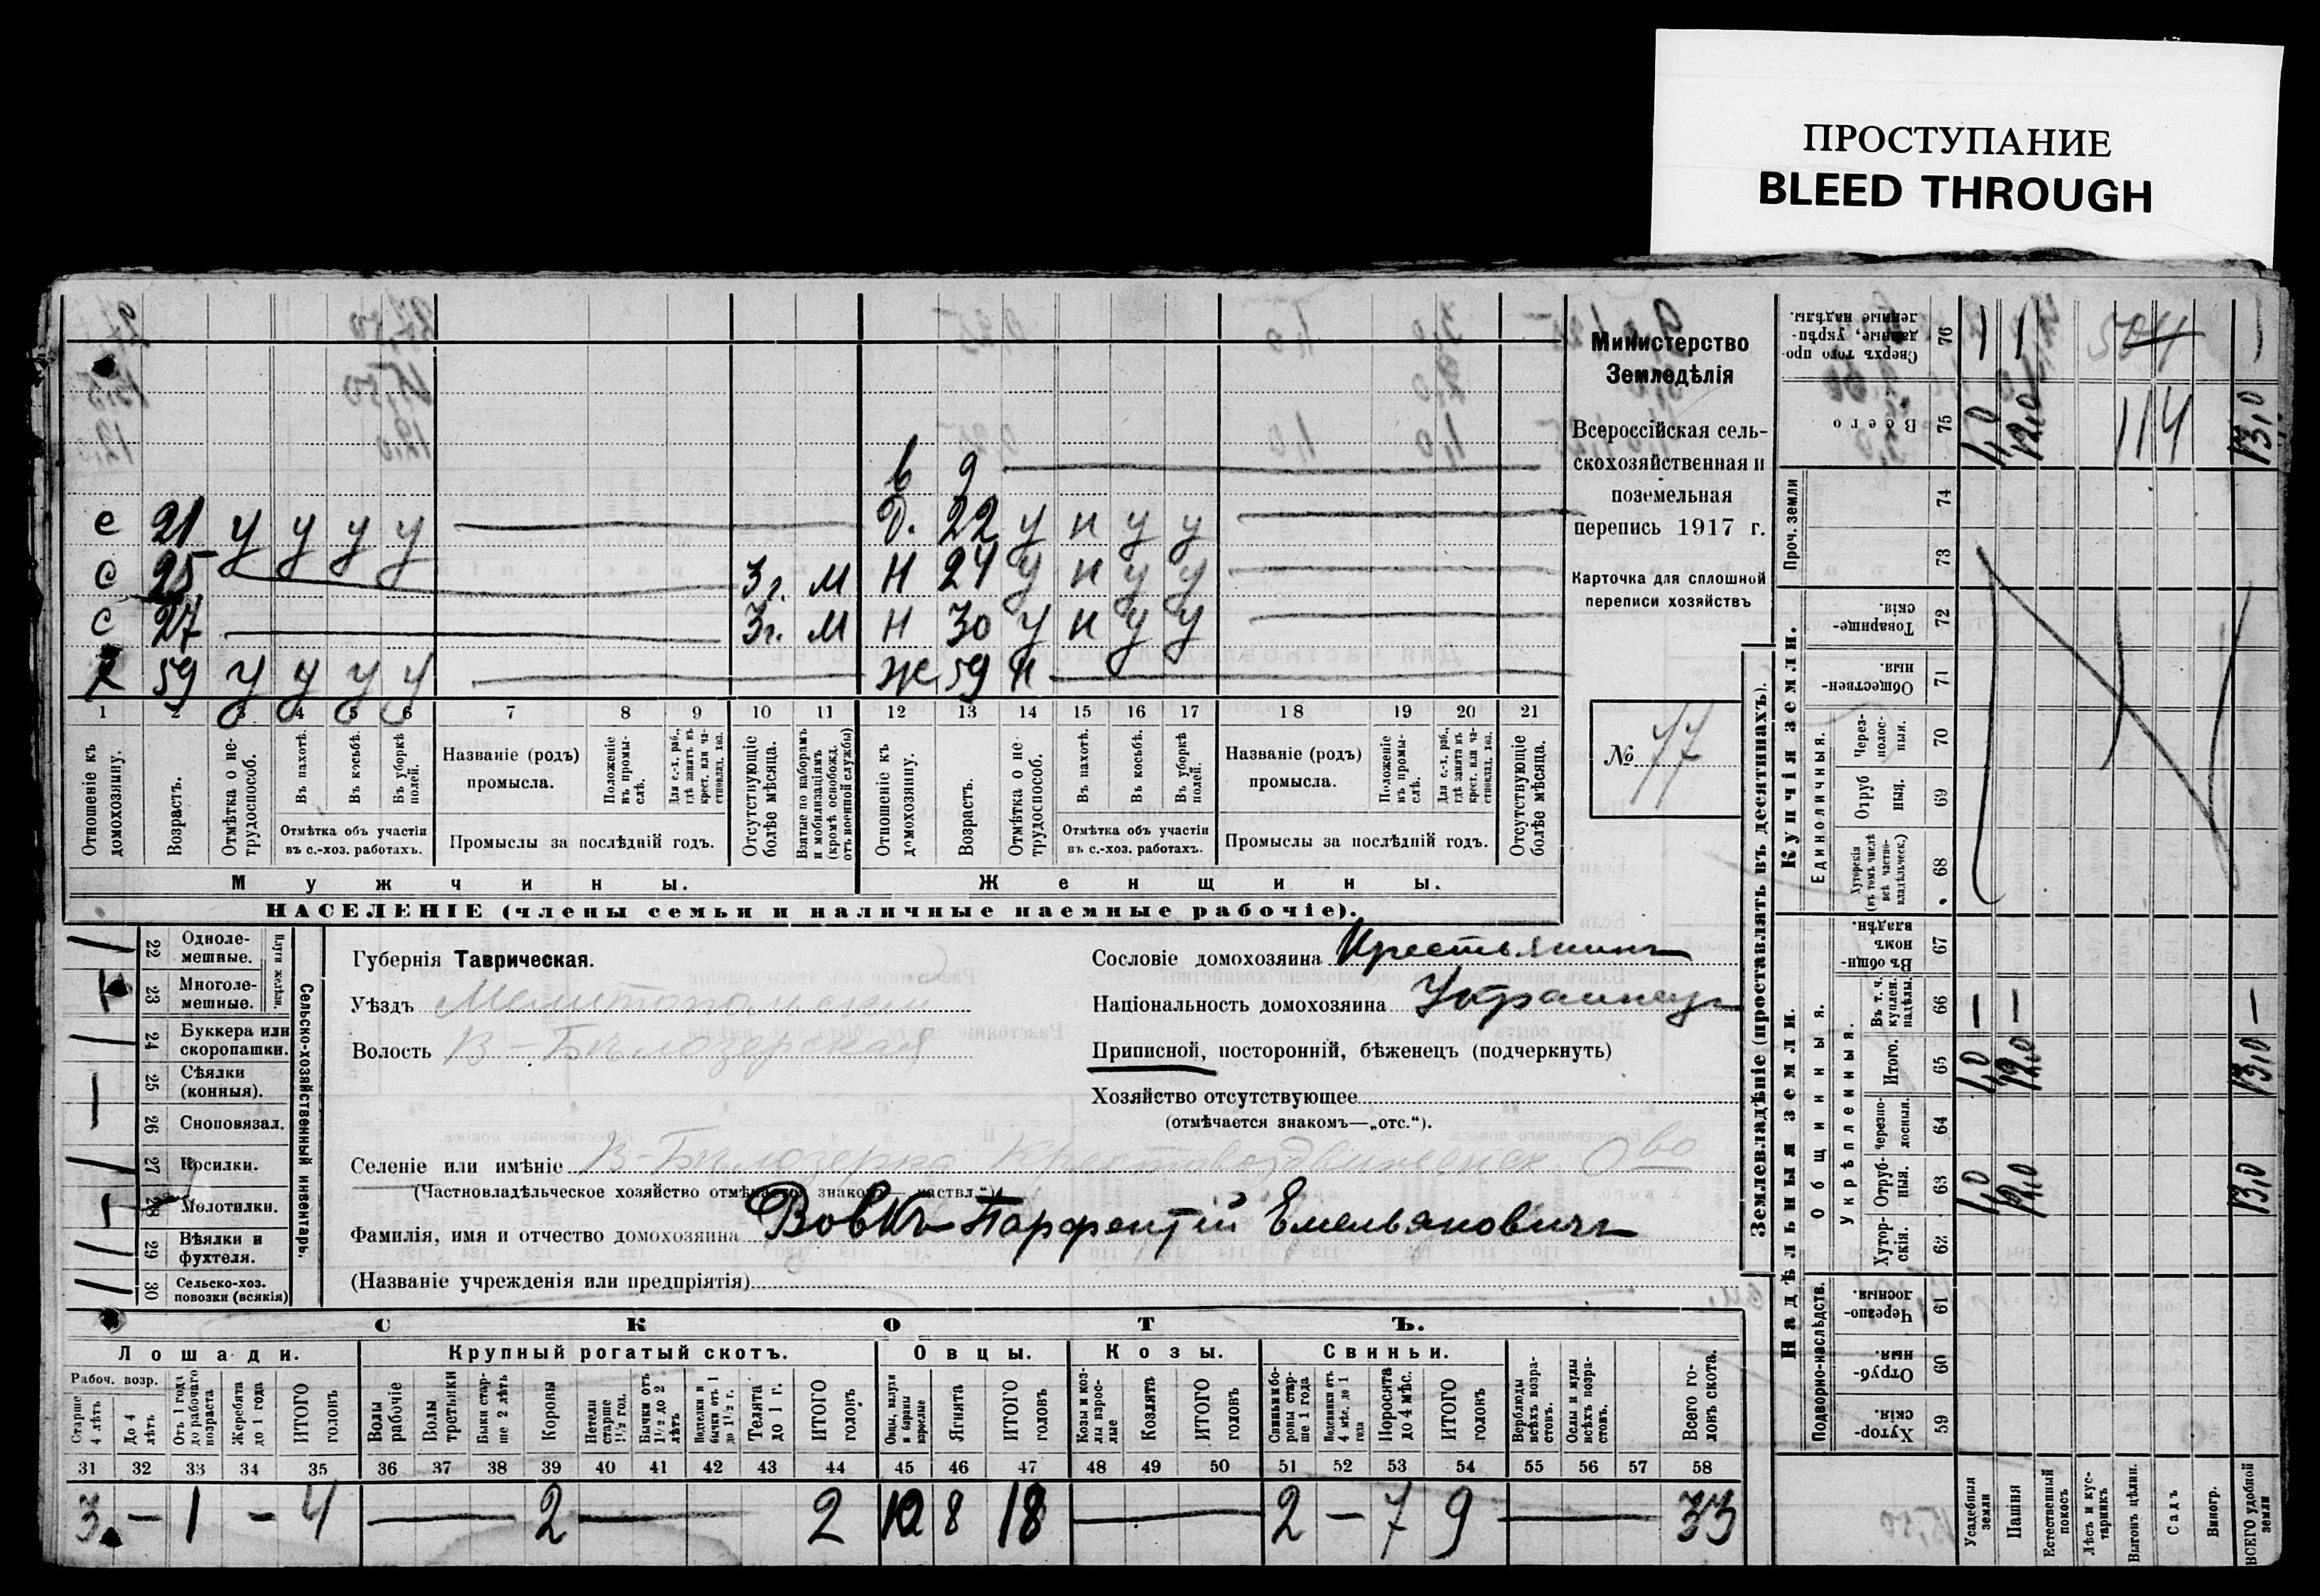 ПРОСТУПАНИЕ
BLEED THROUGH
в 9
с 21 у у у у Д. 22 у н у у
с 25 3 г. М Н 24 у н у у
с 27 3 г. М Н 30 у н у у
х 59 у у у у Ж 59 н
1 2 3 4 5 6 7 8 9 10 11 12 13 14 15 16 17 18 19 20 21
Отношеніе къ домохозяину.
Возрастъ.
Отмѣтка о нетрудоспособ.
Въ пахотѣ.
Въ косьбѣ.
Въ уборкѣ полей.
Отмѣтка объ участіи въ с.-хоз. работахъ.
Названіе (родъ) промысла.
Положеніе въ промыслѣ.
Для с.-х. раб., гдѣ занятъ въ крест. или частновлад. хоз.
Промыслы за послѣдній годъ.
Отсутствующіе болѣе мѣсяца.
Взятые по наборамъ и мобилизаціямъ (кромѣ освобожд. отъ военной службы)
Отношеніе къ домохозяину.
Возрастъ.
Отмѣтка о нетрудоспособ.
Въ пахотѣ.
Въ косьбѣ.
Въ уборкѣ полей.
Отмѣтка объ участіи въ с.-хоз. работахъ.
Названіе (родъ) промысла.
Положеніе въ промыслѣ.
Для с.-х. раб., гдѣ занята въ крест. или частновлад. хоз.
Промыслы за послѣдній годъ.
Отсутствующіе болѣе мѣсяца.
Мужчины. Женщины.
НАСЕЛЕНІЕ (члены семьи и наличные наемные рабочіе).
Министерство
Земледѣлія
Всероссійская сель-
скохозяйственная и
поземельная
перепись 1917 г.
Карточка для сплошной
переписи хозяйствъ
№ 77
22 Одноле-
мешные.
23 Многоле-
мешные.
Плуги желѣзн.
24 Буккера или
скоропашки.
25 Сѣялки
(конныя).
26 Сноповязал.
27 Косилки.
28 Молотилки.
29 Вѣялки и
фухтеля.
30 Сельско-хоз.
повозки (всякія)
Сельско-хозяйственный инвентарь.
Губернія Таврическая.
Уѣздъ Мелитопольскій
Волость В-Бѣлозерская
Сословіе домохозяина Крестьянинъ
Національность домохозяина Украинецъ
Приписной, посторонній, бѣженецъ (подчеркнуть)
Хозяйство отсутствующее
(отмѣчается знакомъ—„отс.“).
Селеніе или имѣніе В-Бѣлозерка Крестовоздвиженск. О-во
(Частновладѣльческое хозяйство отмѣчается знакомъ — „частвл.“)
Фамилія, имя и отчество домохозяина Вовкъ Парфентій Емельяновичъ
(Названіе учрежденія или предпріятія)
СКОТЪ.
Лошади. Крупный рогатый скотъ. Овцы. Козы. Свиньи.
Рабоч. возр.
Старше 4 лѣтъ
До 4 лѣтъ
Отъ 1 года до рабочаго возраста
Жеребята до 1 года
ИТОГО головъ
Волы рабочіе
Волы третьяки
Быки старше 2 лѣтъ
Коровы
Нетели старше 1½ год.
Бычки отъ 1½ до 2 лѣтъ
Телки и бычки отъ 1 до 1½ г.
Телята до 1 г.
ИТОГО головъ
Овцы, валухи и бараны взрослые
Ягнята
ИТОГО головъ
Козы и козлы взрослые
Козлята
ИТОГО головъ
Свиньи и боровы старше 1 года
Подсвинки отъ 4 мѣс. до 1 года
Поросята до 4 мѣс.
ИТОГО головъ
Верблюды всѣхъ возрастовъ.
Ослы и мулы всѣхъ возрастовъ.
Всего головъ скота.
31 32 33 34 35 36 37 38 39 40 41 42 43 44 45 46 47 48 49 50 51 52 53 54 55 56 57 58
3 — 1 — 4 — 2 — 2 10 8 18 — 2 — 7 9 — 33
Землевладѣніе (проставлять въ десятинахъ).
Надѣльныя земли.
Купчія земли.
Проч. земли
Подворно-наслѣдств.
Общинныя.
Укрѣпленныя.
Единоличныя.
Сверхъ того проданные, укрѣпленные надѣлы. 76 — — 504 —
Всего 75 1,0 12,0 114 13,0
74
73
Товарищескія. 72
Общественныя. 71
Черезполосныя. 70
Отрубныя. 69
Хуторскія (въ томъ числѣ всѣ частновладѣльческ.) 68
Въ общинномъ владѣн. 67
Въ т. ч. куплен. надѣлы. 66 — — —
Итого. 65 1,0 12,0 13,0
Черезполосныя. 64
Отрубныя. 63 1,0 12,0 13,0
Хуторскія. 62
Черезполосныя. 61
Отрубныя. 60
Хуторскія 59
Усадебныя земли
Пашня
Естественный покосъ
Лѣсъ и кустарникъ
Выгонъ цѣлин.
Садъ
Виногр.
ВСЕГО удобной земли